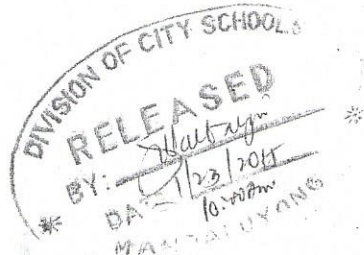 DIVISION OF CITY SCHOOLS
RELEASED
BY:
DA 1/23/2015
10:40am
MANDALUYONG